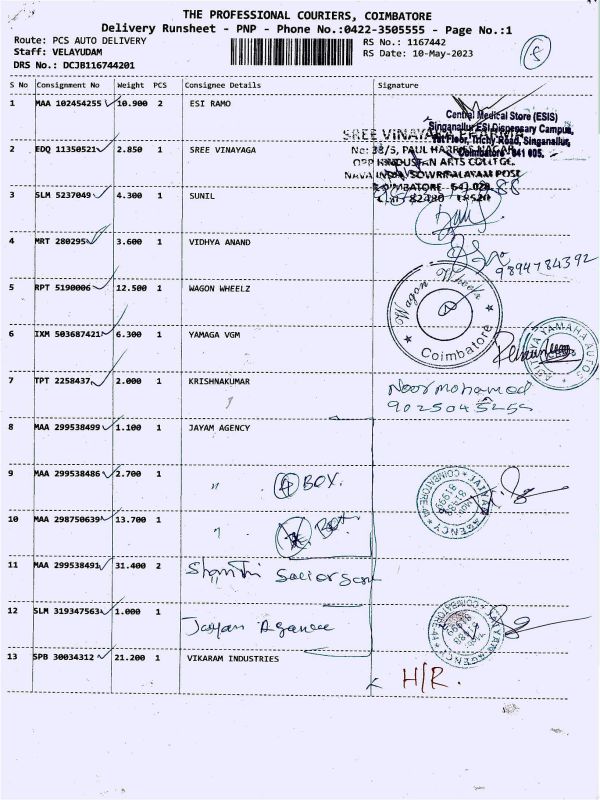 THE PROFESSIONAL COURIERS, COIMBATORE
Delivery Runsheet - PNP - Phone No.:0422-3505555 - Page No.:1
Route: PCS AUTO DELIVERY
RS No.: 1167442
Staff: VELAYUDAM
RS Date: 10-May-2023
DRS No.: DCJB116744201
S No Consignment No Weight PCS Consignee Details Signature
1 MAA 102454255 10.900 2 ESI RAMO
Central Medical Store (ESIS)
Singanallur ESI Dispensary Campus,
1st Floor, Trichy Road, Singanallur,
Coimbatore - 641 005.
2 EDQ 11350521 2.850 1 SREE VINAYAGA
SREE VINAYAGA PHARMA
No: 38/5, PAUL HARRIS NAGAR
OPP HINDUSTAN ARTS COLLEGE.
NAVA INDIA, SOWRIPALAYAM POST
COIMBATORE - 641 028.
3 SLM 5237049 4.300 1 SUNIL
4 MRT 280295 3.600 1 VIDHYA ANAND
9894784392
5 RPT 5190006 12.500 1 WAGON WHEELZ
Wagon Wheelz
Coimbatore
6 IXM 503687421 6.300 1 YAMAGA VGM
YAMAHA AUTOS
7 TPT 2258437 2.000 1 KRISHNAKUMAR
Noor mohamed
8 MAA 299538499 1.100 1 JAYAM AGENCY
9 MAA 299538486 2.700 1 " 4 BOX.
JAYAM AGENCY
COIMBATORE
10 MAA 298750639 13.700 1 "
11 MAA 299538491 31.400 2 Shanthi
12 SLM 319347563 1.000 1 Jayam Agence
JAYAM AGENCY
COIMBATORE
13 SPB 30034312 21.200 1 VIKARAM INDUSTRIES
H/R.